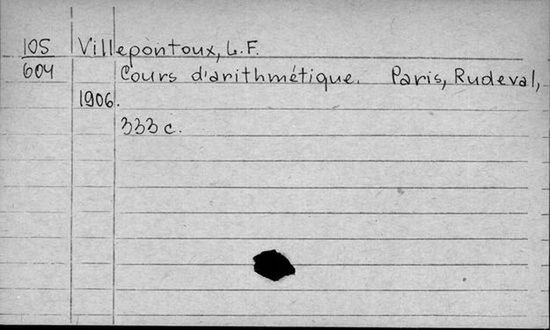 105 Villepontoux, L.F.
604 Cours d'arithmétique. Paris, Rudeval,
1906.
333 c.